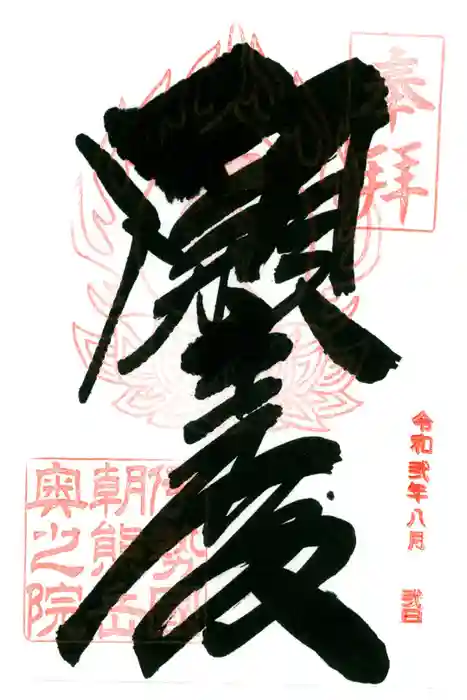 奉拝
願王
令和弐年八月 弐日
伊勢國
朝熊岳
奥之院